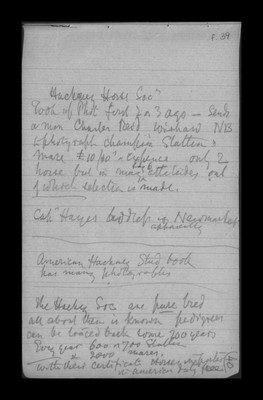 r. 39
Hackney Horse Socy
Took up Phot first 2 or 3 ago – Sends
a man Charles Reid Wishaw NB
to photograph champion Stallion &
Mare £10/10/- expence only 2
horses but in many attitudes out
of which selection is made.
Capt Hayes address Newmarket
apparently
American Hackney Stud book
has many photographs
The Hackney Soc are pure bred
all about them is known pedigrees
can be traced back some 200 years
Every year 600 or 700 Stallions
& 2000 mares.
with their certificate Horses
in America duty free